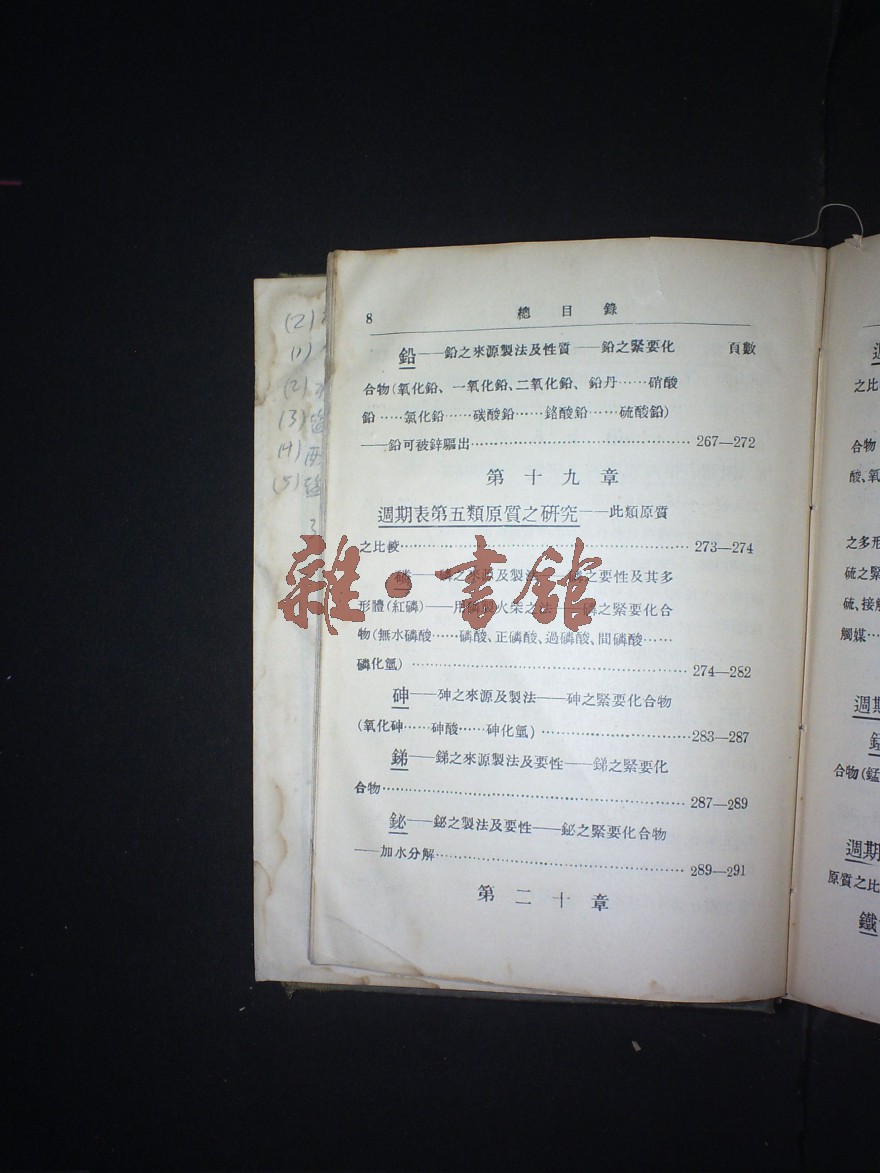 8
總目錄
鉛——鉛之來源製法及性質——鉛之緊要化 頁數
合物(氧化鉛、一氧化鉛、二氧化鉛、鉛丹……硝酸
鉛……氯化鉛……碳酸鉛……鉻酸鉛……硫酸鉛)
——鉛可被鋅驅出 267—272
第十九章
週期表第五類原質之研究——此類原質
之比較 273—274
磷——磷之來源及製法——磷之要性及其多
形體(紅磷)——用磷製火柴之法——磷之緊要化合
物(無水磷酸……磷酸、正磷酸、過磷酸、間磷酸……
磷化氫) 274—282
砷——砷之來源及製法——砷之緊要化合物
(氧化砷……砷酸……砷化氫) 283—287
銻——銻之來源製法及要性——銻之緊要化
合物 287—289
鉍——鉍之製法及要性——鉍之緊要化合物
——加水分解 289—291
第二十章
雜·書館
(2)
(1)
(2)
(3)
(4)
(5)
之比
合物
酸、氧
之多形
硫之緊
硫、接觸
觸媒……
週期
錳
合物(錳
週期
原質之比
鐵